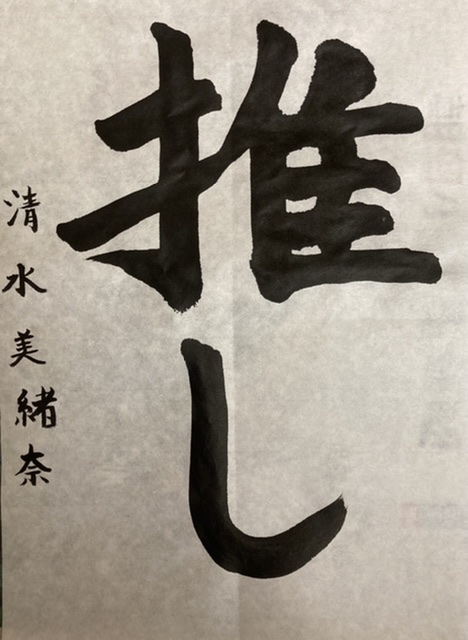 推し
清水美緒奈